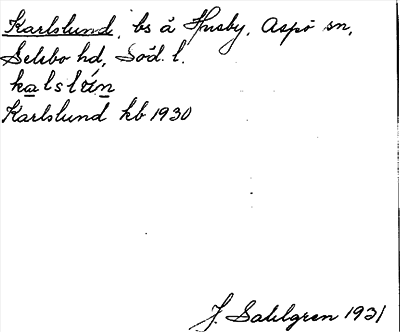 Karlslund, bs å Husby, Aspö sn,
Selebo hd, Söd. l.
Karlslund kb 1930
J. Sahlgren 1931